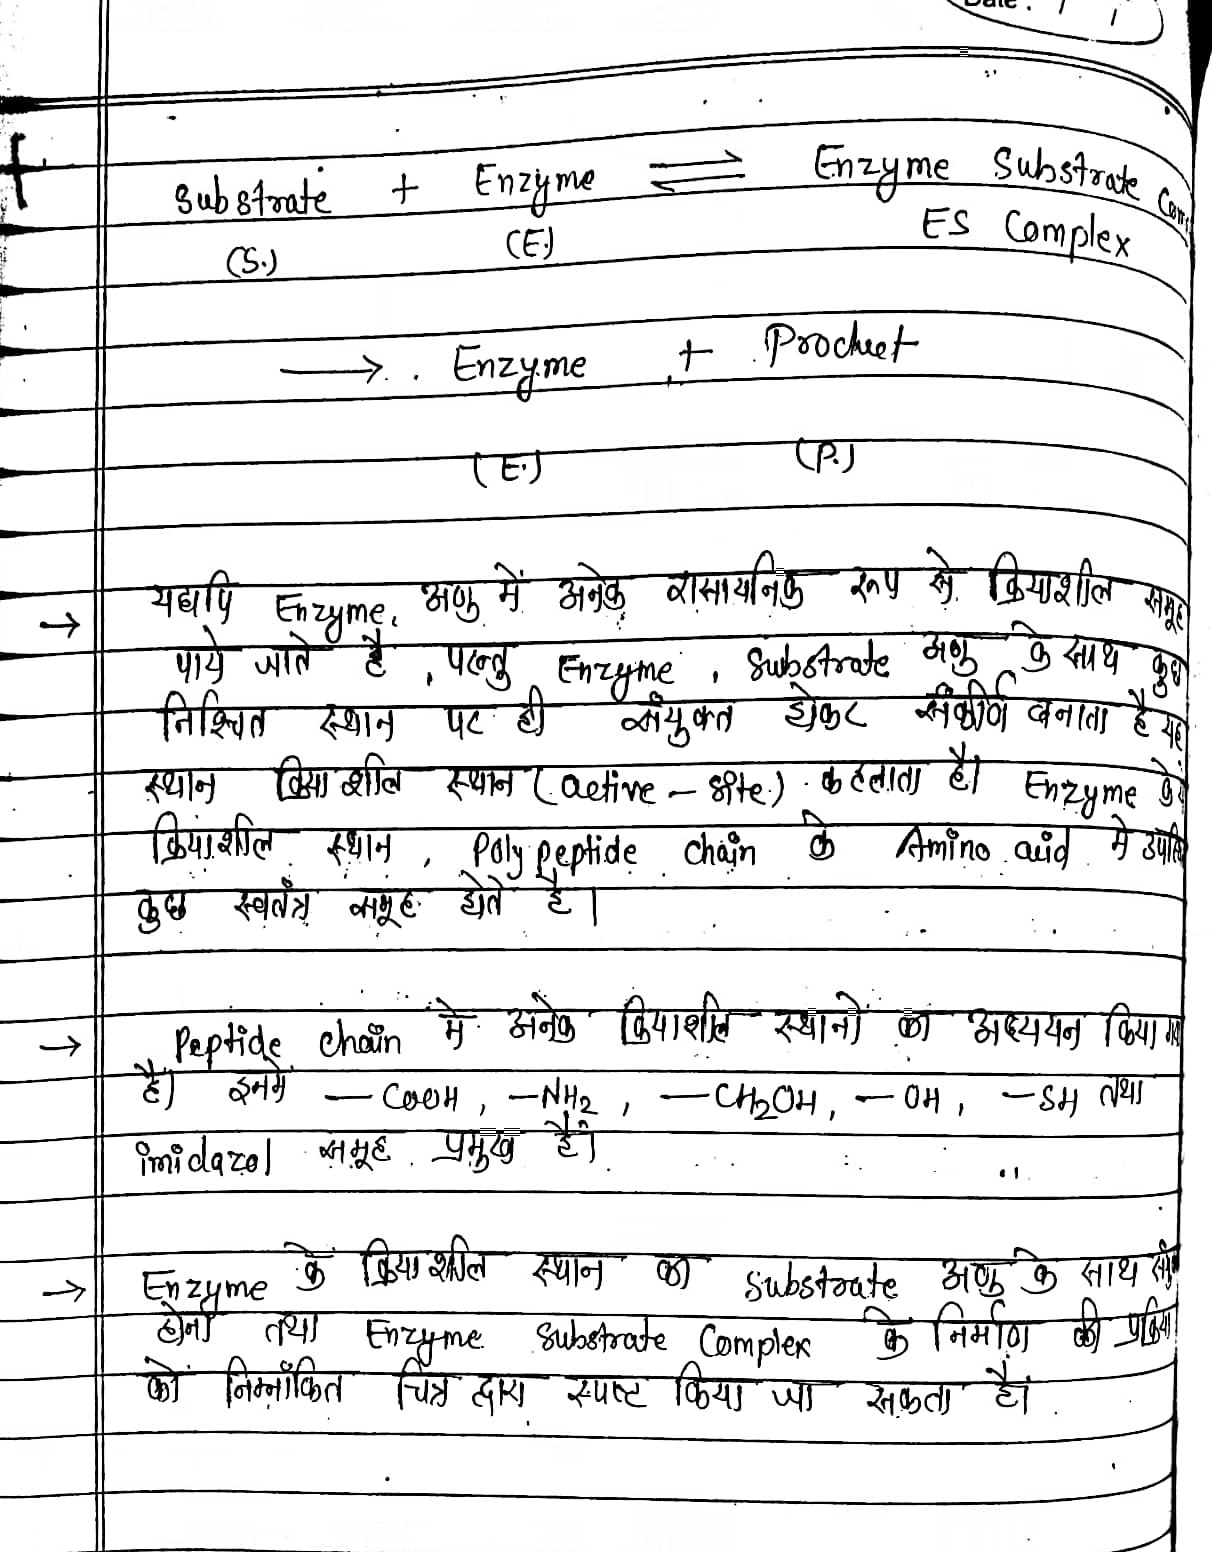 Date : / /
Substrate + Enzyme ⇌ Enzyme Substrate Com
(S.) (E.) ES Complex
⟶ Enzyme + Product
(E.) (P.)
→ यद्यपि Enzyme, अणु में अनेक रासायनिक रूप से क्रियाशील समूह
पाये जाते है , परन्तु Enzyme , Substrate अणु के साथ कुछ
निश्चित स्थान पर ही संयुक्त होकर संकीर्ण बनाता है यह
स्थान क्रियाशील स्थान (active - site) कहलाता है। Enzyme के
क्रियाशील स्थान , Polypeptide chain के Amino acid मे
कुछ स्वतंत्र समूह होते है ।
→ Peptide chain मे अनेक क्रियाशील स्थानों का अध्ययन किया गया
है। इनमें — COOH , —NH₂ , —CH₂OH, — OH , —SH तथा
imidazol समूह प्रमुख है।
→ Enzyme के क्रियाशील स्थान का Substrate अणु के साथ
होना तथा Enzyme Substrate Complex के निर्माण की प्रक्रिया
को निम्नांकित चित्र द्वारा स्पष्ट किया जा सकता है।